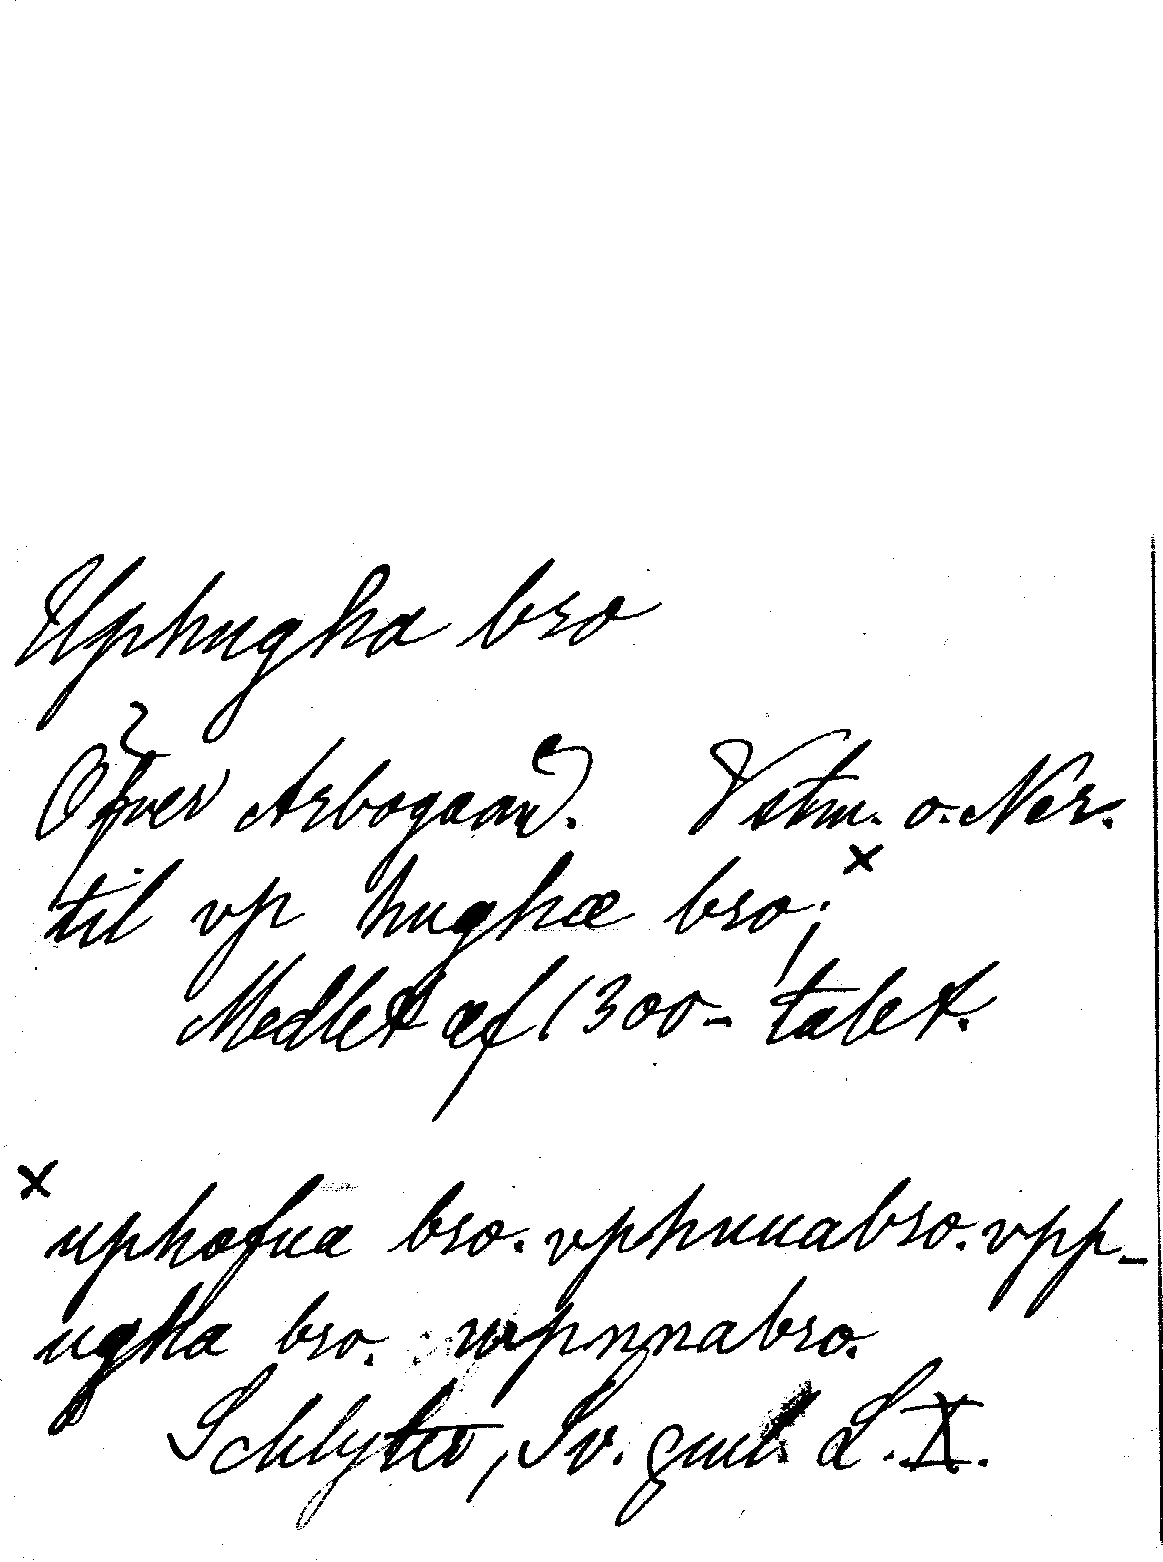 Uphugha bro
Öfver Arbogaån. Vstm. o. Ner.
til vp hughæ bro;×
Medlet af 1300-talet.
× uphafua bro. vphuuabro. vpp-
ugha bro. vpnnabro.
Schlyter, Sv. gml. L. X.